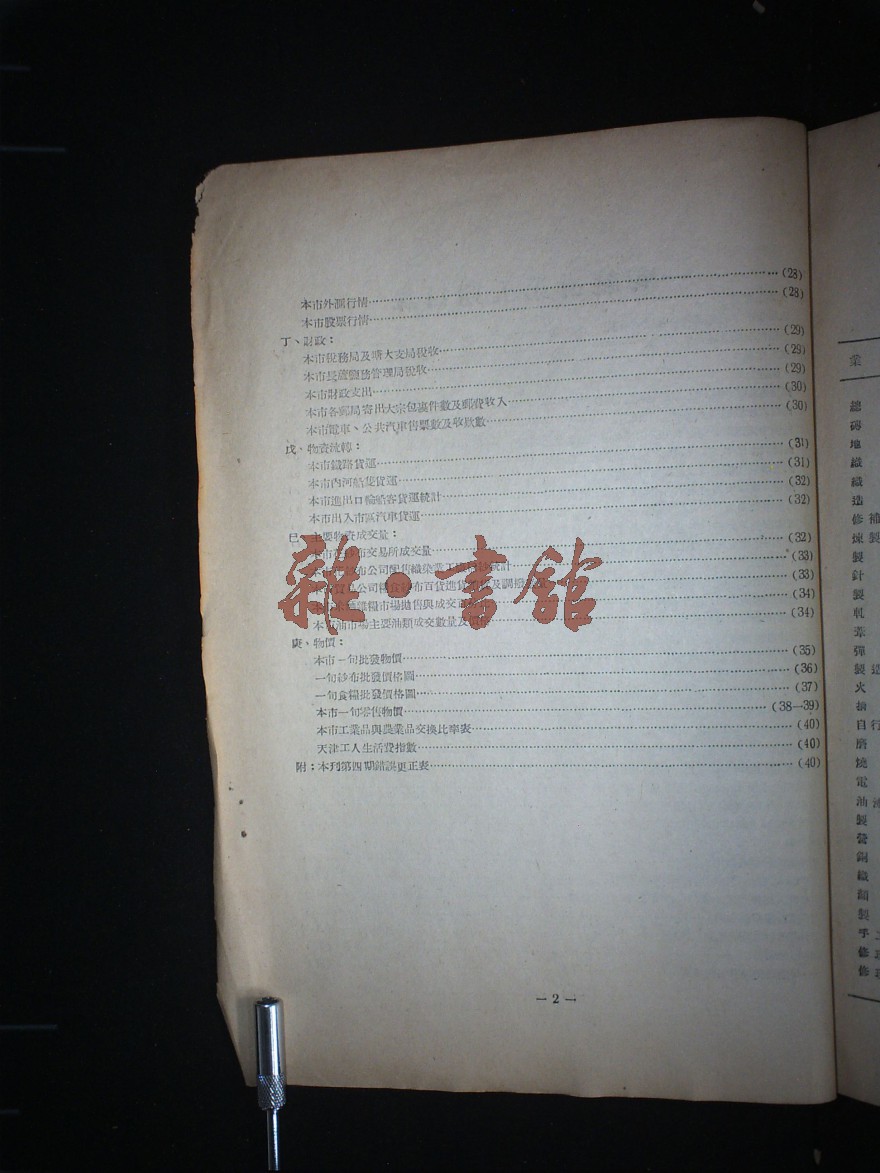 本市外匯行情……(28)
本市股票行情……(28)
丁、財政：
本市稅務局及塘大支局稅收……(29)
本市長蘆鹽務管理局稅收……(29)
本市財政支出……(29)
本市各郵局寄出大宗包裹件數及郵費收入……(30)
本市電車、公共汽車售票數及收款數……(30)
戊、物資流轉：
本市鐵路貨運……(31)
本市內河船隻貨運……(31)
本市進出口輪船客貨運統計……(32)
本市出入市區汽車貨運……(32)
己、主要物資成交量：
布交易所成交量……(32)
布公司配售織染業 統計……(33)
公司糧食紗布百貨進貨 及調撥……(33)
雜糧市場拋售與成交……(34)
本市油市場主要油類成交數量及……(34)
庚、物價：
本市一旬批發物價……(35)
一旬紗布批發價格圖……(36)
一旬食糧批發價格圖……(37)
本市一旬零售物價……(38—39)
本市工業品與農業品交換比率表……(40)
天津工人生活費指數……(40)
附：本刊第四期錯誤更正表……(40)
雜·書館
—2—
業
總
磚
地
織
織
造
修補
煉製
製
針
製
軋
革
彈
製造
火
搶
自行
磨
燒
電
油
製
營
銅
織
顏
製
手工
修
修